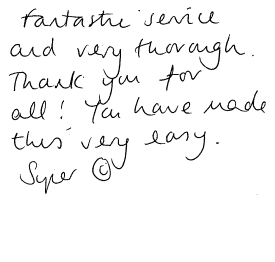 Fantastic service
and very thorough.
Thank you for
all! You have made
this very easy.
Super ☺